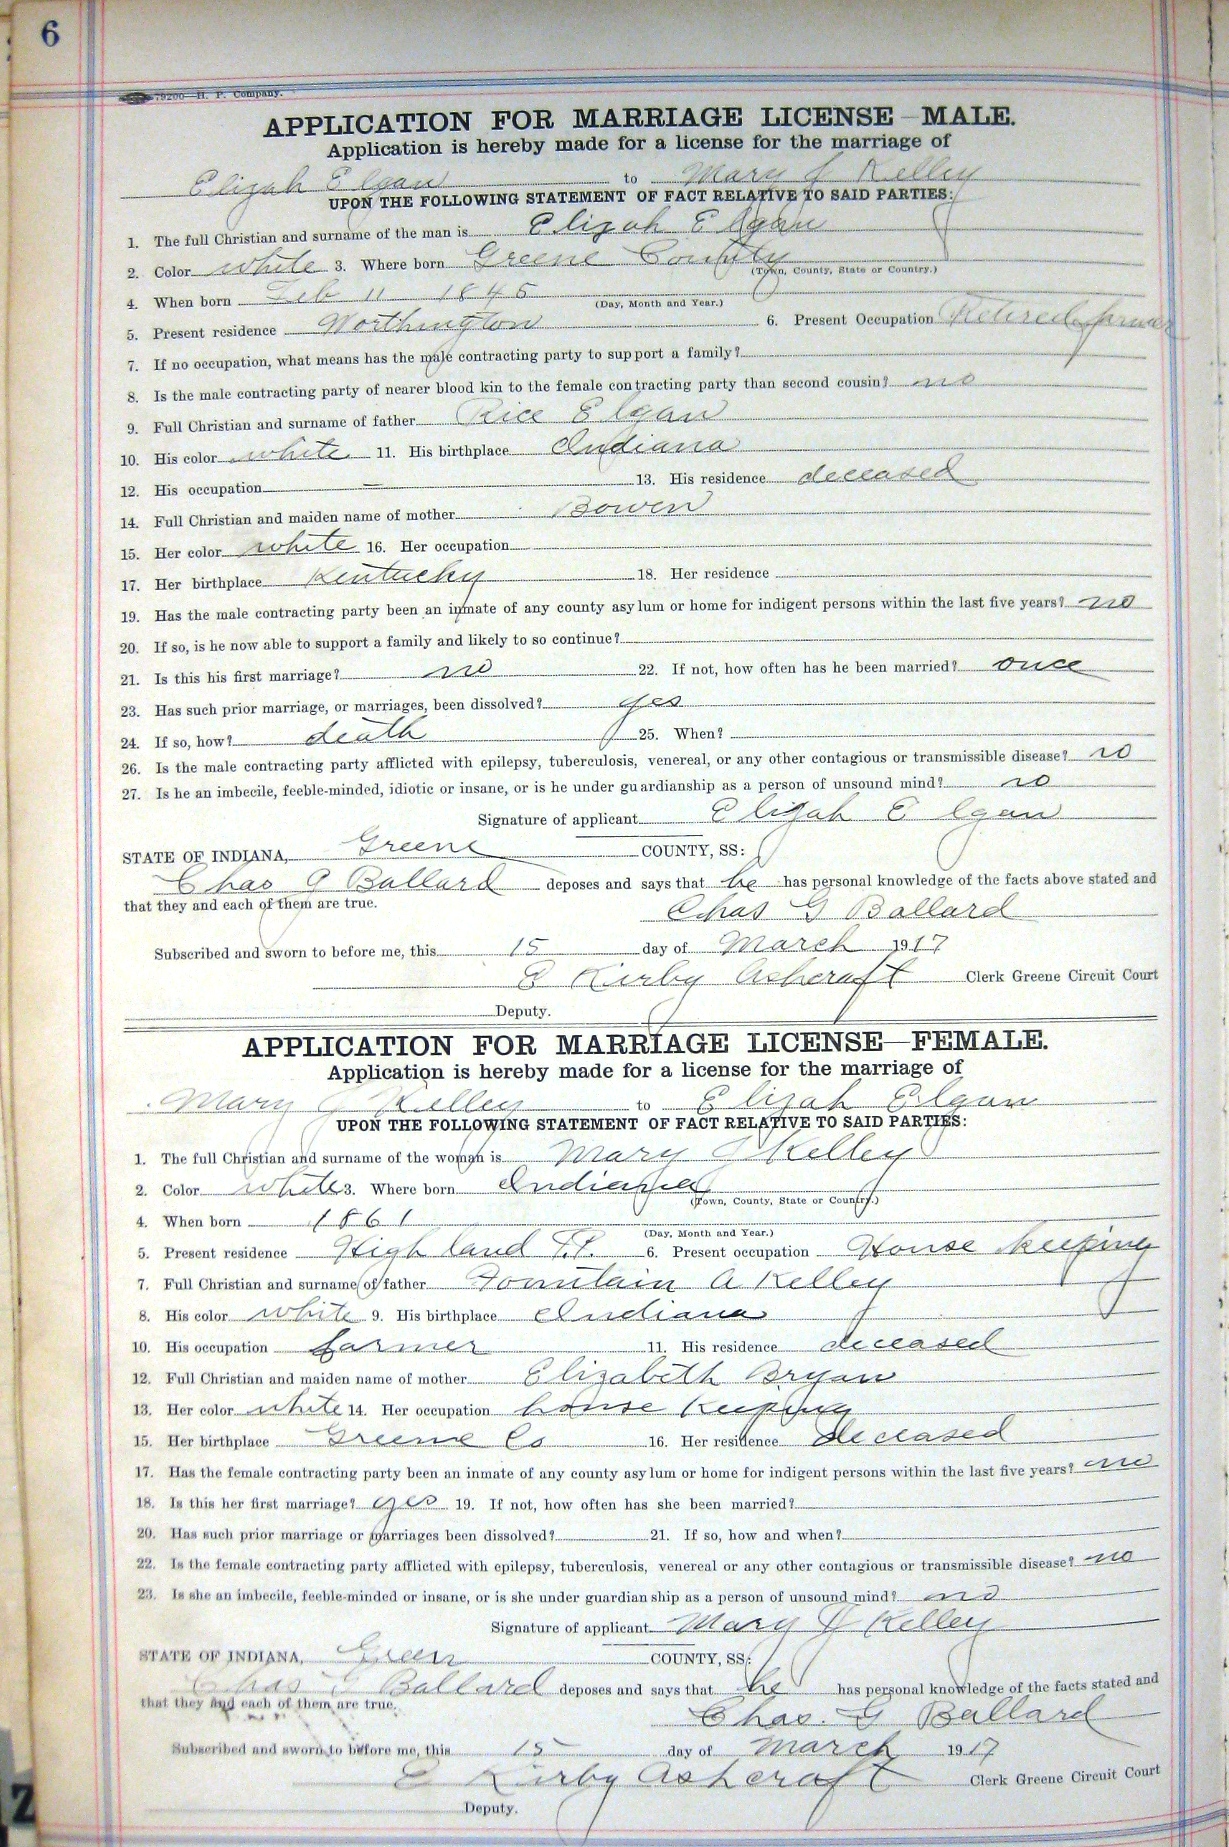 6
79200—H. P. Company.
APPLICATION FOR MARRIAGE LICENSE—MALE.
Application is hereby made for a license for the marriage of
Elijah Elgan to Mary J Kelley
UPON THE FOLLOWING STATEMENT OF FACT RELATIVE TO SAID PARTIES:
1. The full Christian and surname of the man is Elijah Elgan
2. Color white 3. Where born Greene County
(Town, County, State or Country.)
4. When born Feb 11 1845
(Day, Month and Year.)
5. Present residence Worthington 6. Present Occupation Retired farmer
7. If no occupation, what means has the male contracting party to support a family?
8. Is the male contracting party of nearer blood kin to the female contracting party than second cousin? no
9. Full Christian and surname of father Rice Elgan
10. His color white 11. His birthplace Indiana
12. His occupation — 13. His residence deceased
14. Full Christian and maiden name of mother Bowen
15. Her color white 16. Her occupation
17. Her birthplace Kentucky 18. Her residence
19. Has the male contracting party been an inmate of any county asylum or home for indigent persons within the last five years? no
20. If so, is he now able to support a family and likely to so continue?
21. Is this his first marriage? no 22. If not, how often has he been married? once
23. Has such prior marriage, or marriages, been dissolved? yes
24. If so, how? death 25. When?
26. Is the male contracting party afflicted with epilepsy, tuberculosis, venereal, or any other contagious or transmissible disease? no
27. Is he an imbecile, feeble-minded, idiotic or insane, or is he under guardianship as a person of unsound mind? no
Signature of applicant Elijah Elgan
STATE OF INDIANA, Greene COUNTY, SS:
Chas G Ballard deposes and says that he has personal knowledge of the facts above stated and
that they and each of them are true.
Chas G Ballard
Subscribed and sworn to before me, this 15 day of March 1917
E Kirby Ashcraft Clerk Greene Circuit Court
Deputy.
APPLICATION FOR MARRIAGE LICENSE—FEMALE.
Application is hereby made for a license for the marriage of
Mary J Kelley to Elijah Elgan
UPON THE FOLLOWING STATEMENT OF FACT RELATIVE TO SAID PARTIES:
1. The full Christian and surname of the woman is Mary J Kelley
2. Color white 3. Where born Indiana
(Town, County, State or Country.)
4. When born 1861
(Day, Month and Year.)
5. Present residence Highland T.P. 6. Present occupation House keeping
7. Full Christian and surname of father Fountain A Kelley
8. His color white 9. His birthplace Indiana
10. His occupation farmer 11. His residence deceased
12. Full Christian and maiden name of mother Elizabeth Bryan
13. Her color white 14. Her occupation house keeping
15. Her birthplace Greene Co 16. Her residence deceased
17. Has the female contracting party been an inmate of any county asylum or home for indigent persons within the last five years? no
18. Is this her first marriage? yes 19. If not, how often has she been married?
20. Has such prior marriage or marriages been dissolved? 21. If so, how and when?
22. Is the female contracting party afflicted with epilepsy, tuberculosis, venereal or any other contagious or transmissible disease? no
23. Is she an imbecile, feeble-minded or insane, or is she under guardian ship as a person of unsound mind? no
Signature of applicant Mary J Kelley
STATE OF INDIANA, Green COUNTY, SS:
Chas G Ballard deposes and says that he has personal knowledge of the facts stated and
that they and each of them are true.
Chas. G Ballard
Subscribed and sworn to before me, this 15 day of March 1917
E Kirby Ashcraft Clerk Greene Circuit Court
Deputy.
Z